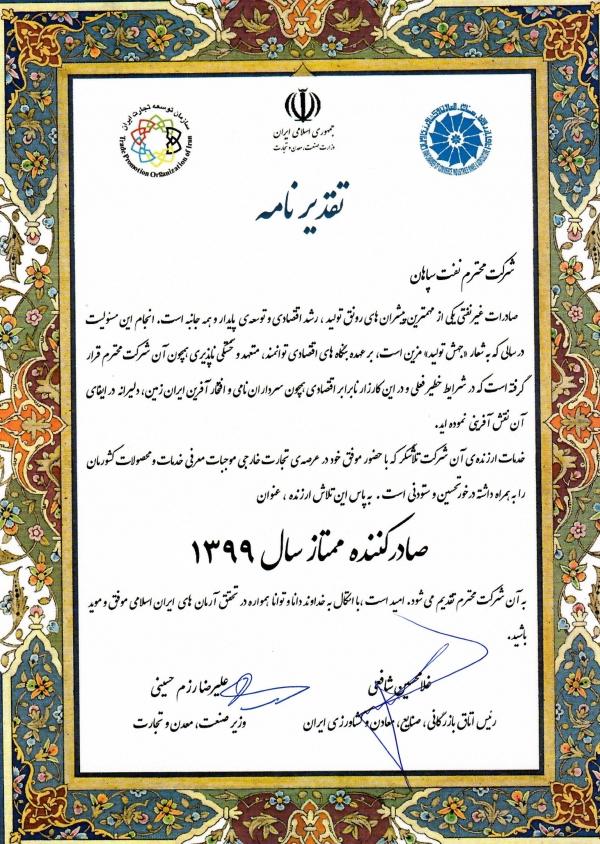 سازمان توسعه تجارت ایران
Trade Promotion Organization of Iran
جمهوری اسلامی ایران
وزارت صنعت، معدن و تجارت
تقدیر نامه
شرکت محترم نفت سپاهان
صادرات غیر نفتی یکی از مهمترین پیشران های رونق تولید، رشد اقتصادی و توسعه ی پایدار و همه جانبه است. انجام این مسئولیت
در سالی که به شعار «جهش تولید» مزین است، بر عهده بنگاه های اقتصادی توانمند، متعهد و خستگی ناپذیری همچون آن شرکت محترم قرار
گرفته است که در شرایط خطیر فعلی و در این کارزار نابرابر اقتصادی همچون سرداران نامی و افتخار آفرین ایران زمین، دلیرانه در ایفای
آن نقش آفرینی نموده اید.
خدمات ارزنده ی آن شرکت تلاشگر که با حضور موفق خود در عرصه ی تجارت خارجی موجبات معرفی خدمات و محصولات کشورمان
را به همراه داشته در خور تحسین و ستودنی است. به پاس این تلاش ارزنده، عنوان
صادرکننده ممتاز سال ۱۳۹۹
به آن شرکت محترم تقدیم می شود. امید است، با اتکال به خداوند دانا و توانا همواره در تحقق آرمان های ایران اسلامی موفق و موید
باشید.
غلامحسین شافعی
رئیس اتاق بازرگانی، صنایع، معادن و کشاورزی ایران
علیرضا رزم حسینی
وزیر صنعت، معدن و تجارت